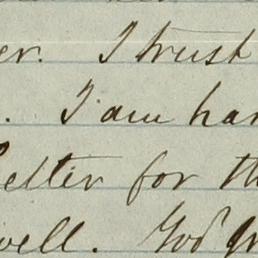 er. I trust
. I am har
better for th
well. God gr